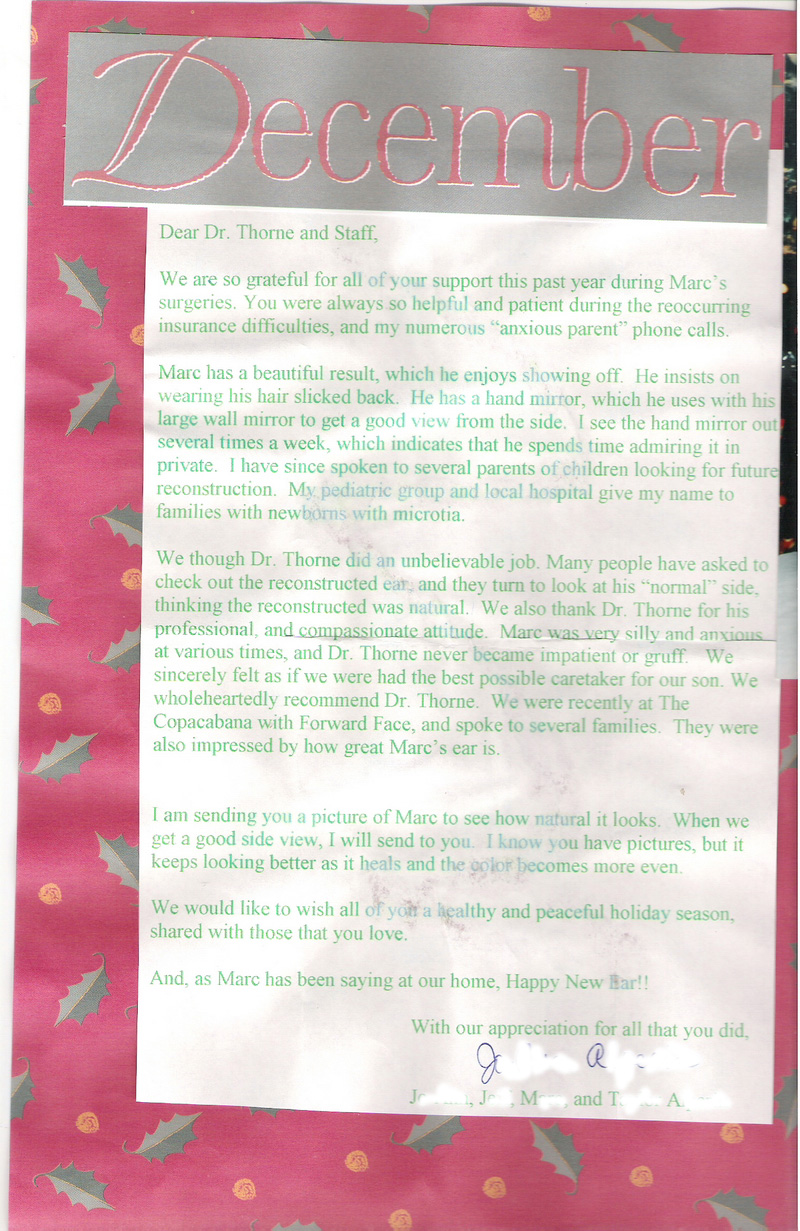 December
Dear Dr. Thorne and Staff,
We are so grateful for all of your support this past year during Marc's
surgeries. You were always so helpful and patient during the reoccurring
insurance difficulties, and my numerous “anxious parent” phone calls.
Marc has a beautiful result, which he enjoys showing off. He insists on
wearing his hair slicked back. He has a hand mirror, which he uses with his
large wall mirror to get a good view from the side. I see the hand mirror out
several times a week, which indicates that he spends time admiring it in
private. I have since spoken to several parents of children looking for future
reconstruction. My pediatric group and local hospital give my name to
families with newborns with microtia.
We though Dr. Thorne did an unbelievable job. Many people have asked to
check out the reconstructed ear, and they turn to look at his “normal” side,
thinking the reconstructed was natural. We also thank Dr. Thorne for his
professional, and compassionate attitude. Marc was very silly and anxious
at various times, and Dr. Thorne never became impatient or gruff. We
sincerely felt as if we were had the best possible caretaker for our son. We
wholeheartedly recommend Dr. Thorne. We were recently at The
Copacabana with Forward Face, and spoke to several families. They were
also impressed by how great Marc's ear is.
I am sending you a picture of Marc to see how natural it looks. When we
get a good side view, I will send to you. I know you have pictures, but it
keeps looking better as it heals and the color becomes more even.
We would like to wish all of you a healthy and peaceful holiday season,
shared with those that you love.
And, as Marc has been saying at our home, Happy New Ear!!
With our appreciation for all that you did,
and